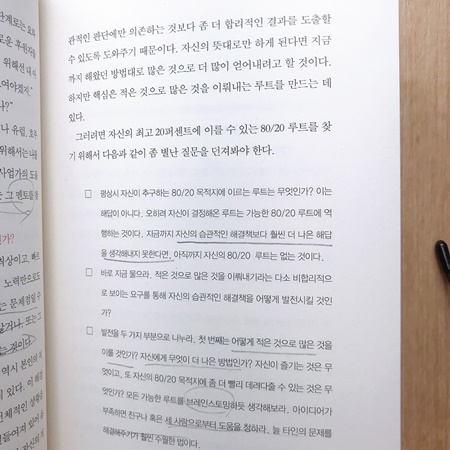 관적인 판단에만 의존하는 것보다 좀 더 합리적인 결과를 도출할
수 있도록 도와주기 때문이다. 자신의 뜻대로만 하게 된다면 지금
까지 해왔던 방법대로 많은 것으로 더 많이 얻어내려고 할 것이다.
하지만 핵심은 적은 것으로 많은 것을 이뤄내는 루트를 만드는 데
있다.
그러려면 자신의 최고 20퍼센트에 이를 수 있는 80/20 루트를 찾
기 위해서 다음과 같이 좀 별난 질문을 던져봐야 한다.
□ 평상시 자신이 추구하는 80/20 목적지에 이르는 루트는 무엇인가? 이는
해답이 아니다. 오히려 자신이 결정해온 루트는 가능한 80/20 루트에 역
행하는 것이다. 지금까지 자신의 습관적인 해결책보다 훨씬 더 나은 해답
을 생각해내지 못한다면, 아직까지 자신의 80/20 루트는 없는 것이다.
□ 바로 지금 물으라. 적은 것으로 많은 것을 이뤄내기라는 다소 비합리적으
로 보이는 요구를 통해 자신의 습관적인 해결책을 어떻게 발전시킬 것인
가?
□ 발전을 두 가지 부분으로 나누라. 첫 번째는 어떻게 적은 것으로 많은 것을
이룰 것인가? 자신에게 무엇이 더 나은 방법인가? 자신이 즐기는 것은 무
엇이고, 또 자신의 80/20 목적지에 좀 더 빨리 데려다줄 수 있는 것은 무
엇인가? 모든 가능한 루트를 브레인스토밍하듯 생각해보라. 아이디어가
부족하면 친구나 혹은 세 사람으로부터 도움을 청하라. 늘 타인의 문제를
해결해주기가 훨씬 수월한 법이다.